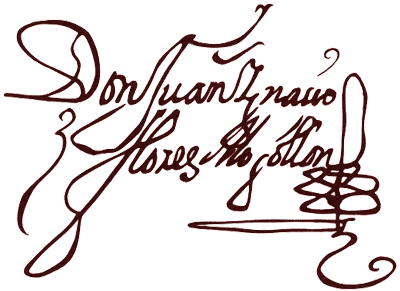 Don Juan Ygnacio
flores Mogollon